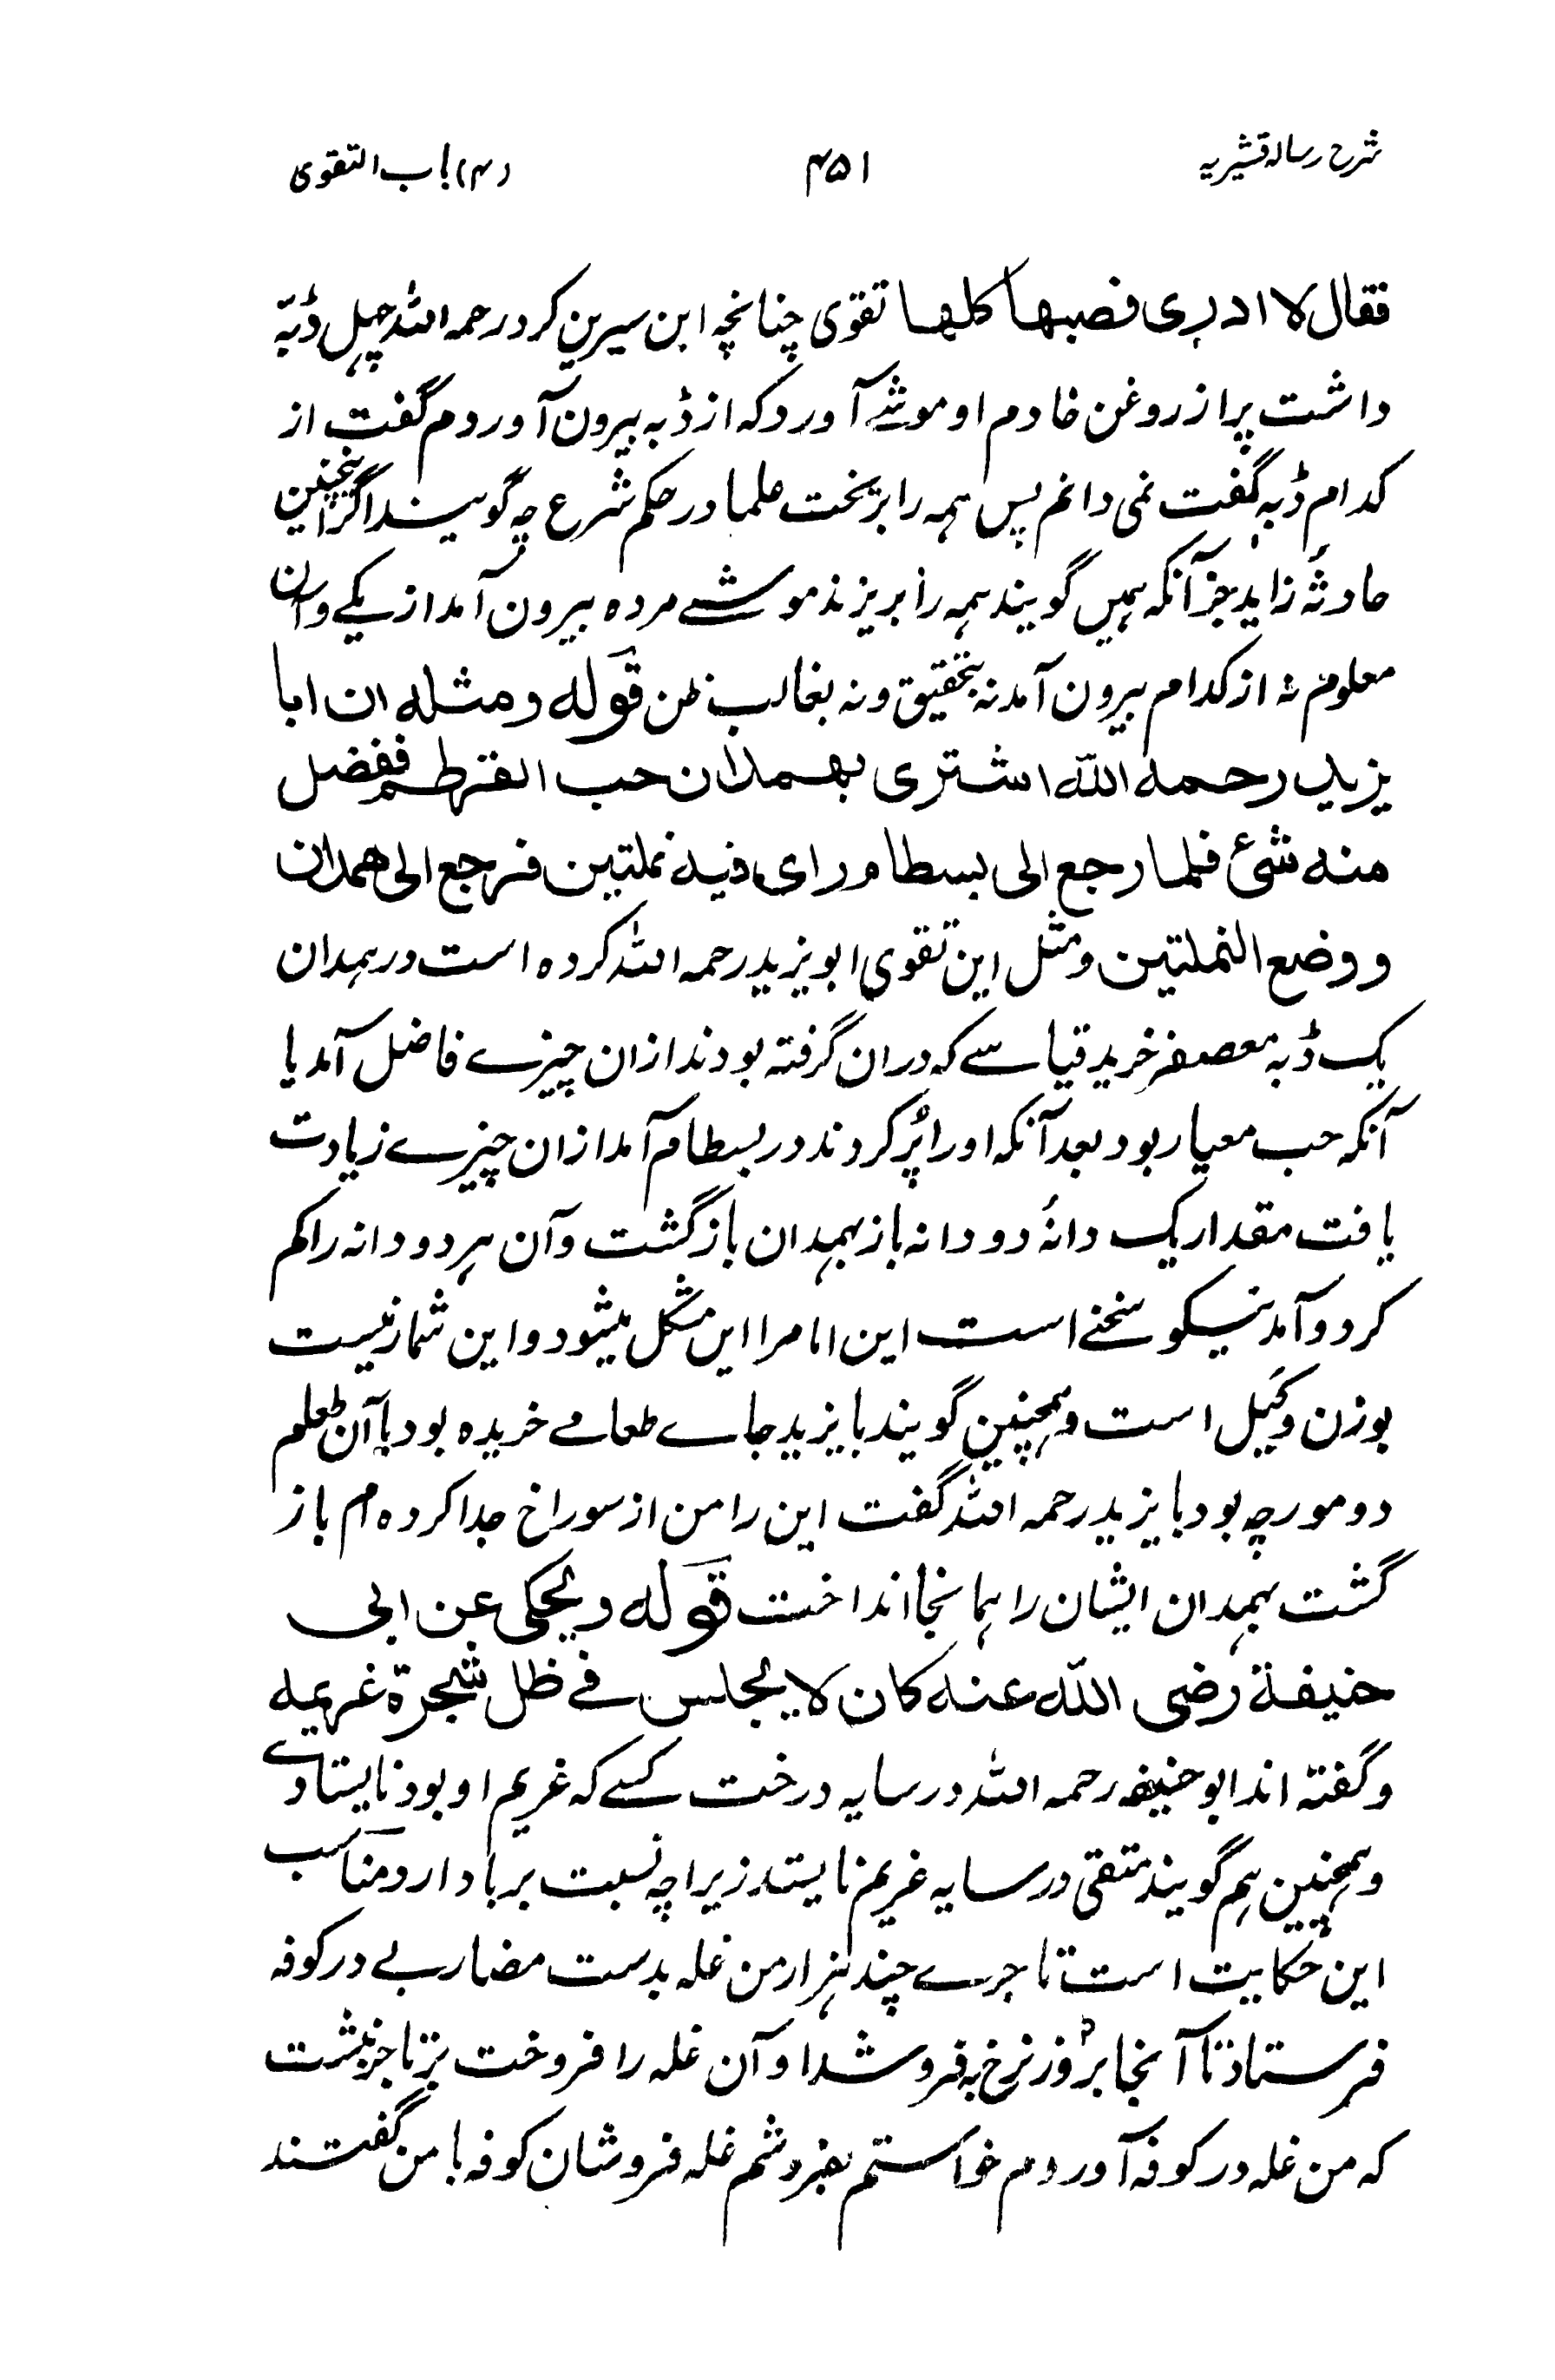 شرح رسالہ قشیریہ
۴۵۱
(۴) باب التقوی
فقال لا ادری فصبها کلها تقوی چنانچہ ابن سیرین کرد رحمہ اللہ چہل ڈبّہ
داشت پر از روغن خادم او موشے آورد کہ از ڈبہ بیرون آوردم گفت از
کدام ڈبہ گفت نمی دانم پس ہمہ را بریخت علما در حکم شرع چہ گویند اگر اینچنین
حادثہ زاید جز آنکہ ہمیں گویند ہمہ را بریزند موشے مردہ بیرون آمد از یکے و آن
معلوم نہ از کدام بیرون آمد نہ بتحقیق و نہ بغالب ظن قوله ومثله ان ابا
یزید رحمه الله اشتری بهمدان حب القرطم ففضل
منه شئ فلما رجع الی بسطام رای فیه نملتین فرجع الی همدان
و وضع النملتین و مثل این تقوی ابو یزید رحمہ اللہ کردہ است در ہمدان
یک ڈبہ معصفر خرید قیاسے کہ دران گرفتہ بودند ازان چیزے فاضل آمد یا
آنکہ حب معیار بود بعد آنکہ اورا پُر کردند در بسطام آمد ازان چیزے زیادت
یافت مقدار یک دانہٴ دو دانہ باز بہمدان باز گشت و آن ہر دو دانہ را کم
کرد و آمد نیکو سخنے است این اما مرا این مشکل میشود و این شمار نیست
بوزن و کَیل است و ہمچنین گویند بایزید جاے طعامے خریدہ بود با آن طعام
دو مورچہ بود بایزید رحمہ اللہ گفت این را من از سوراخ جدا کردہ ام باز
گشت بہمدان ایشان را ہمانجا انداخت قوله و یحکی عن ابی
حنیفة رضی الله عنه کان لا یجلس فے ظل شجرة غریمه
و گفتہ اند ابو حنیفہ رحمہ اللہ در سایہ درخت کسے کہ غریم او بود نایستادے
و ہمچنین ہم گویند متقی در سایہ غریم نایستد زیرا چہ نسبت بربا دارد مناسب
این حکایت است تاجرے چند ہزار من غلہ بدست مضاربے در کوفہ
فرستاد تا آنجا بروز نرخ بہ فروشد او آن غلہ را فروخت بر تاجر نبشت
کہ من غلہ در کوفہ آوردم خواستم بفروشم غلہ فروشان کوفہ با من گفتند